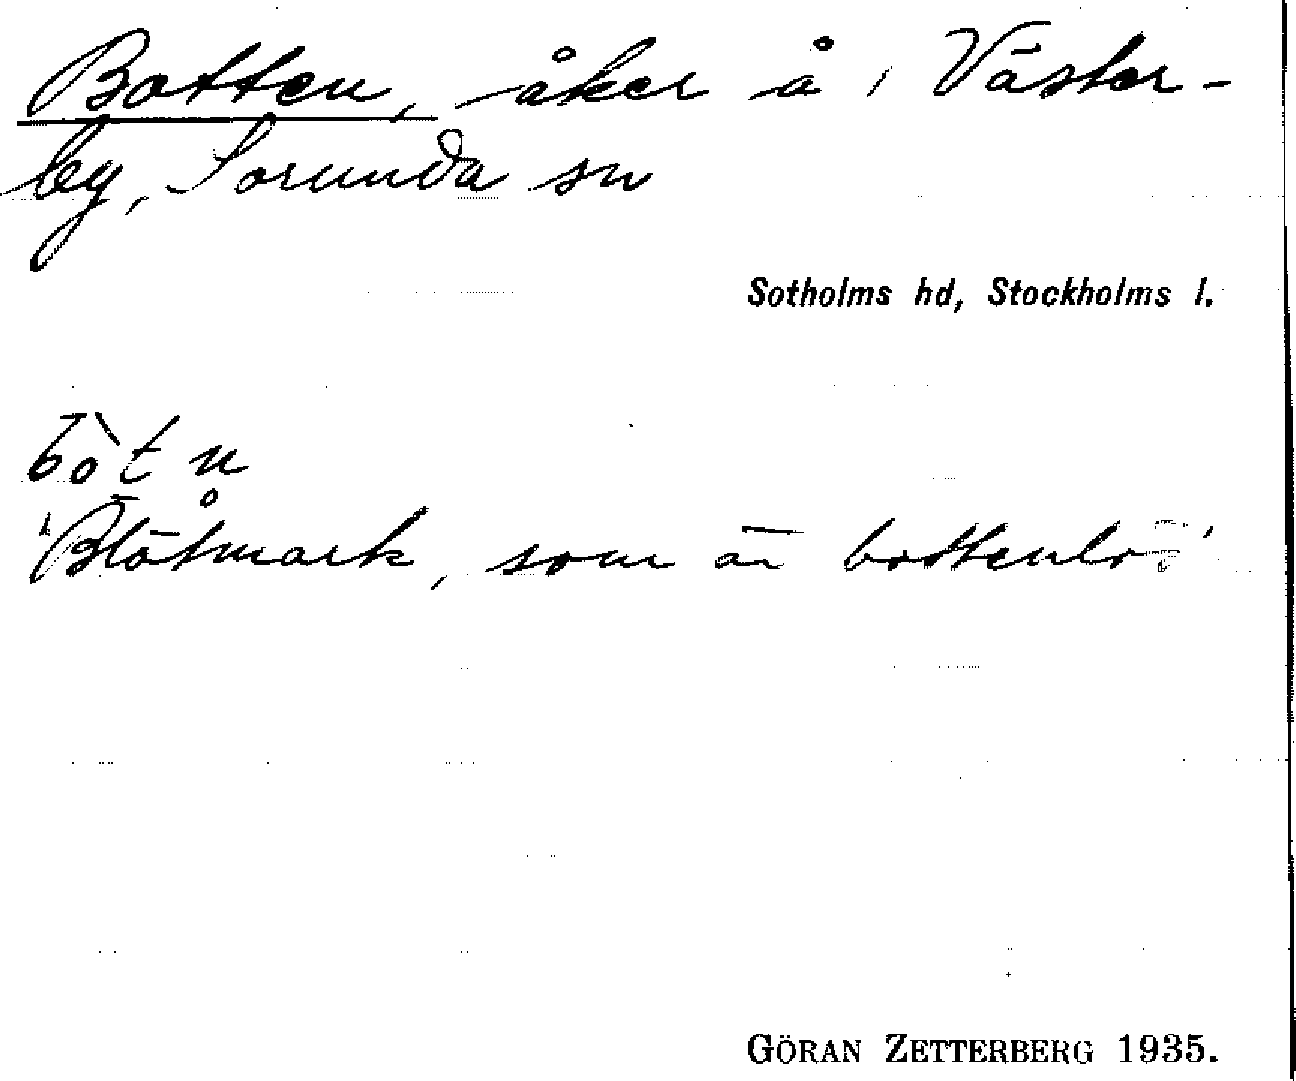 Botten, åker å, Väster-
by, Sorunda sn
Sotholms hd, Stockholms l.
bòt n̥
"Blötmark, som är bottenlös"
GÖRAN ZETTERBERG 1935.